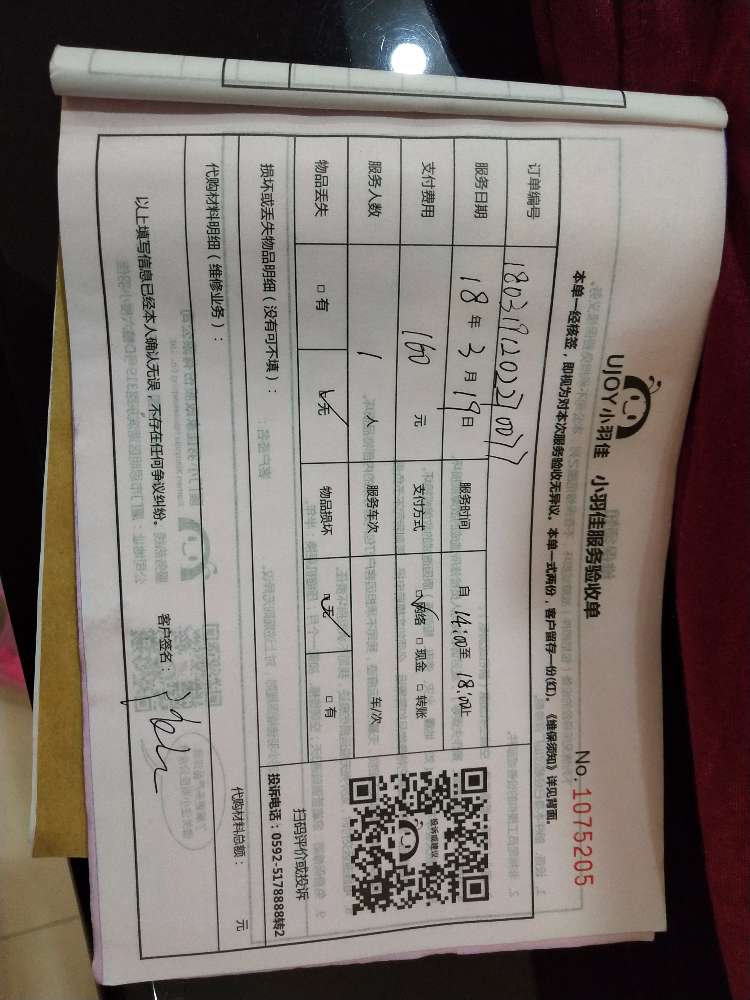 UJOY小羽佳 小羽佳服务验收单
No. 1075205
本单一经核签，即视为对本次服务验收无异议。本单一式两份，客户留存一份(红)。《维保须知》详见背面。
订单编号
服务日期 18年3月19日 服务时间 自14:00至18:00止
支付费用 160 元 支付方式 ☑网络 □现金 □转账
服务人数 1 人 服务车次 车/次
物品丢失 □有 ☑无 物品损坏 ☑无 □有
投诉或建议
扫码评价或投诉
投诉电话：0592-5178888转2
损坏或丢失物品明细（没有可不填）：
代购材料明细（维修业务）： 代购材料总额： 元
以上填写信息已经本人确认无误，不存在任何争议纠纷。 客户签名：